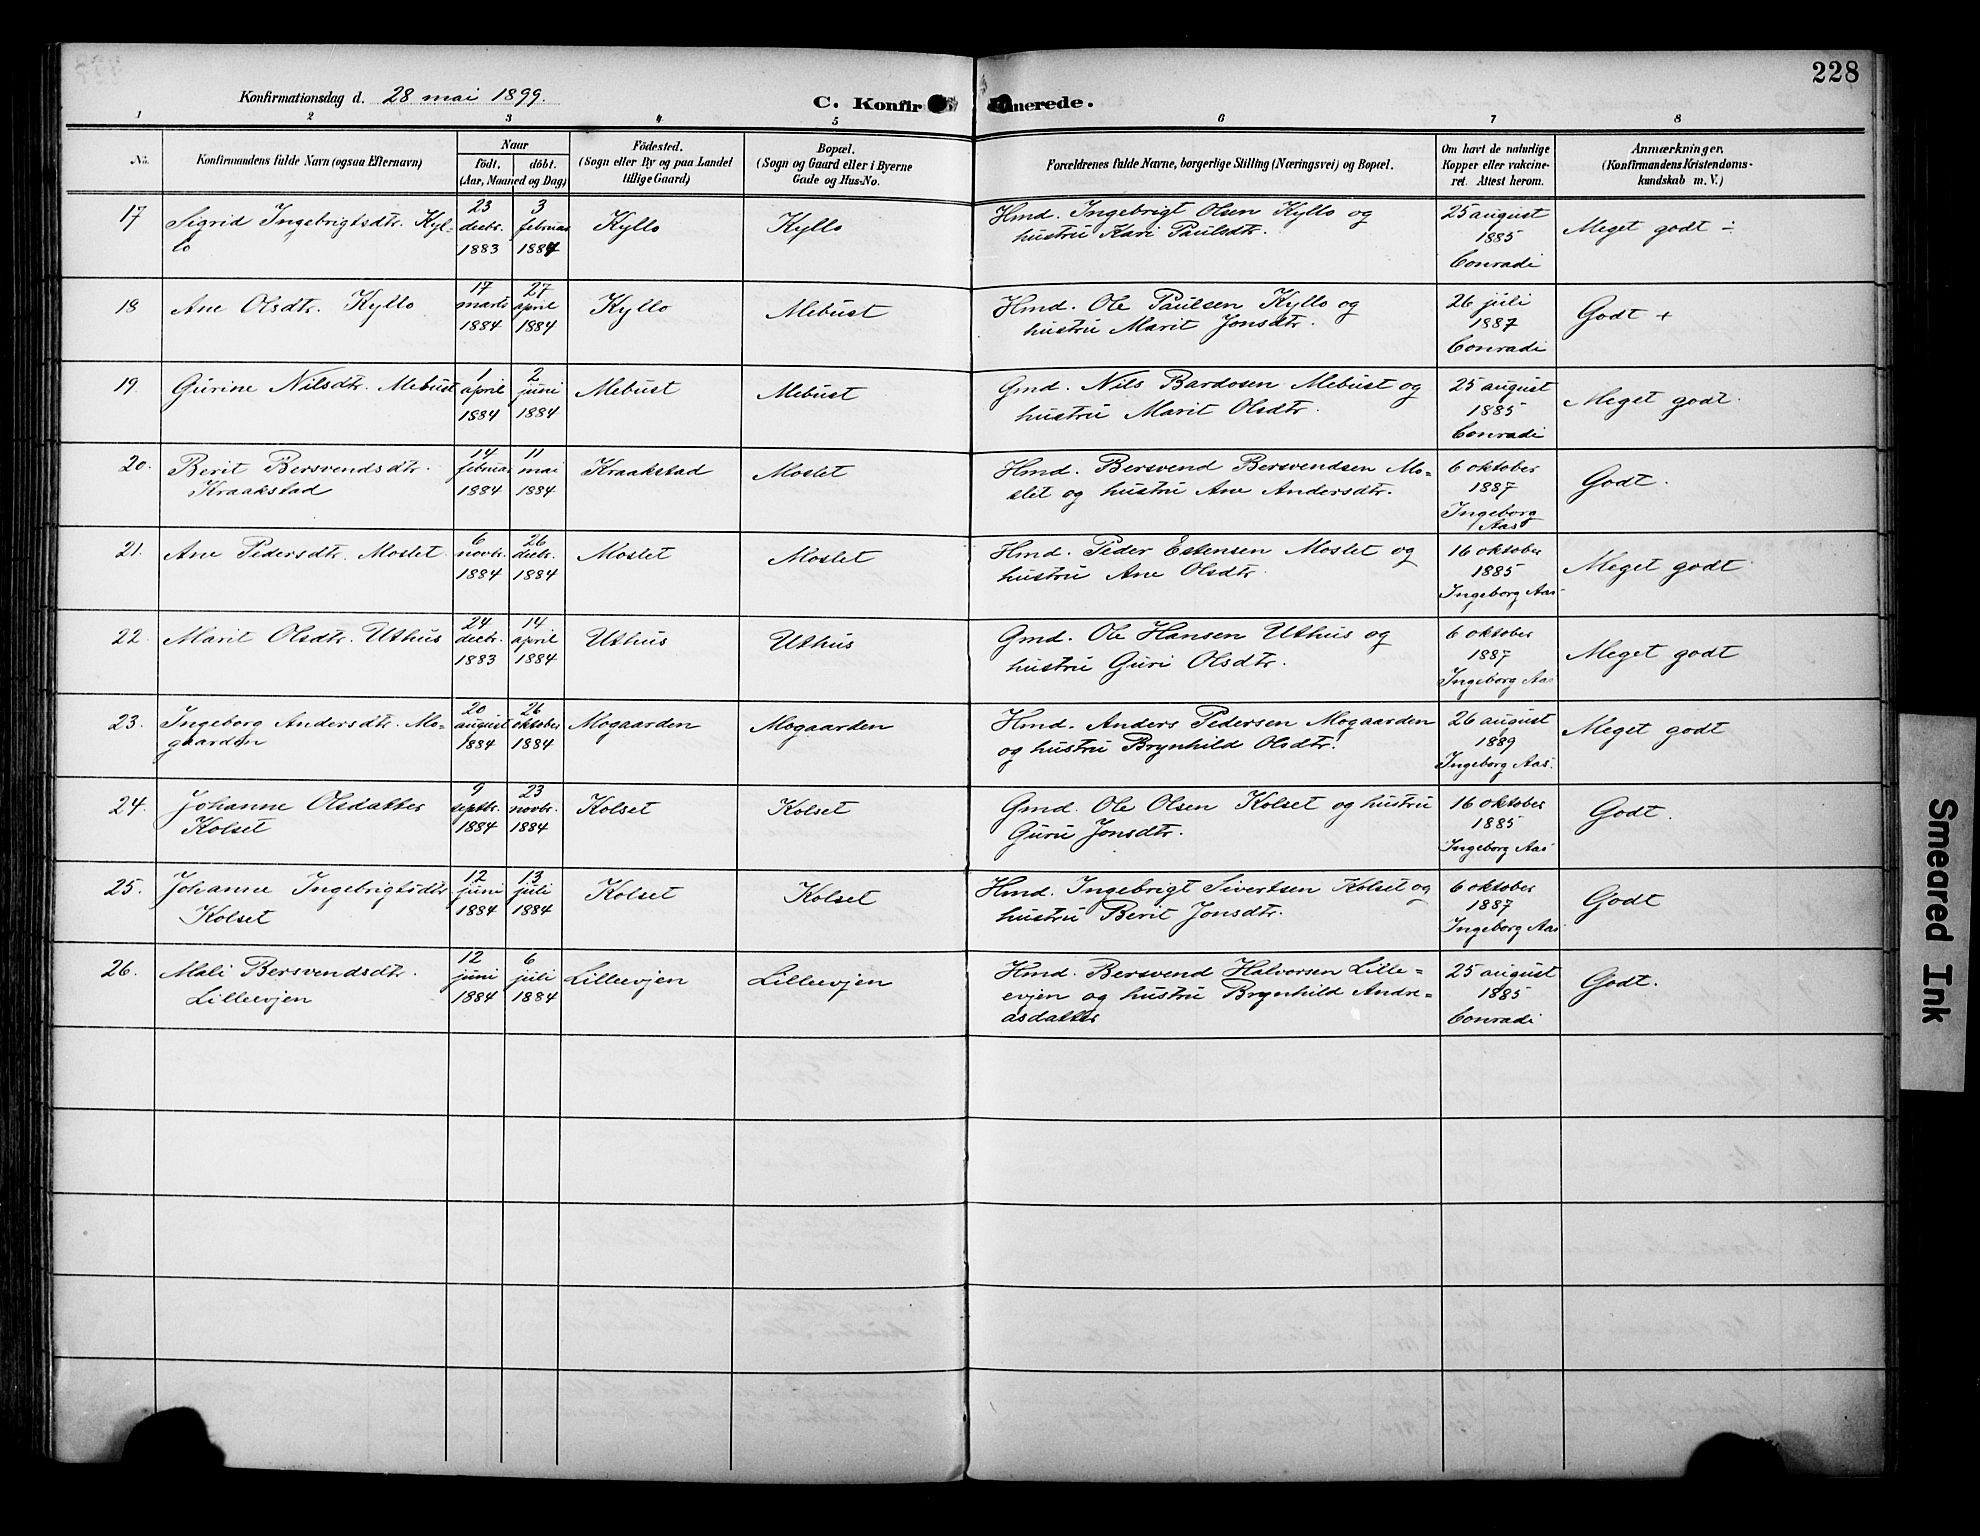 228
Konfirmationsdag d. 28 mai 1899.
C. Konfirmerede.
1 2 3 4 5 6 7 8
No.
Konfirmandens fulde Navn (ogsaa Efternavn)
Naar
födt. döbt.
(Aar, Maaned og Dag)
Födested.
(Sogn eller By og paa Landet
tillige Gaard)
Bopæl.
(Sogn og Gaard eller i Byerne
Gade og Hus-No.
Forældrenes fulde Navne, borgerlige Stilling (Næringsvei) og Bopæl.
Om havt de naturlige
Kopper eller vakcine-
ret. Attest herom.
Anmærkninger.
(Konfirmandens Kristendoms-
kundskab m. V.)
17 Sigrid Ingebrigtsdtr. Kyl-
lo
23
decbr.
1883
3
februar
1884
Kyllo
Kyllo
Hmd. Ingebrigt Olsen Kyllo og
hustru Kari Paulsdtr.
25 august
1885
Conradi
Meget godt ÷
18 Ane Olsdtr. Kyllo
17
marts
1884
27
april
1884
Kyllo
Mebust
Hmd. Ole Paulsen Kyllo og
hustru Marit Jonsdtr.
26 juli
1887
Conradi
Godt +
19. Gurine Nilsdtr. Mebust
1
april
1884
2
juni
1884
Mebust
Mebust
Gmd. Nils Bardosen Mebust og
hustru Marit Olsdtr.
25 august
1885
Conradi
Meget godt.
20. Berit Bersvendsdtr.
Kraakstad
14
februar
1884
11
mai
1884
Kraakstad
Moslet
Hmd. Bersvend Bersvendsen Mo-
slet og hustru Ane Andersdtr.
6 oktober
1887
Ingeborg
Aas
Godt.
21. Ane Pedersdtr. Moslet.
6
novbr.
1884
26
decbr.
1884
Moslet
Moslet
Hmd. Peder Estensen Moslet og
hustru Ane Olsdtr.
16 oktober
1885
Ingeborg Aas
Meget godt
22. Marit Olsdtr. Uthus
24
decbr.
1883
14
april
1884
Uthus
Uthus
Gmd. Ole Hansen Uthus og
hustru Guri Olsdtr.
6 oktober
1887
Ingeborg Aas
Meget godt
23. Ingeborg Andersdtr. Mo-
gaarden
20
august
1884
26
oktober
1884
Mogaarden
Mogaarden
Hmd. Anders Pedersen Mogaarden
og hustru Brynhild Olsdtr.
26 august
1889
Ingeborg Aas.
Meget godt
24. Johanne Olsdatter
Kolset
9
septbr.
1884
23
novbr.
1884
Kolset
Kolset
Gmd. Ole Olsen Kolset og hustru
Guru Jonsdtr.
16 oktober
1885
Ingeborg Aas
Godt.
25. Johanne Ingebrigtsdtr.
Kolset
12
juni
1884
13
juli
1884
Kolset
Kolset
Hmd. Ingebrigt Sivertsen Kolset og
hustru Berit Jonsdtr.
6 oktober
1887
Ingeborg Aas
Godt
26. Mali Bersvendsdtr.
Lilleevjen
12
juni
1884
6
juli
1884
Lilleevjen
Lilleevjen
Hmd. Bersvend Halvorsen Lille=
evjen og hustru Brynhild Andre=
asdatter
25 august
1885
Conradi
Godt.
Smeared Ink